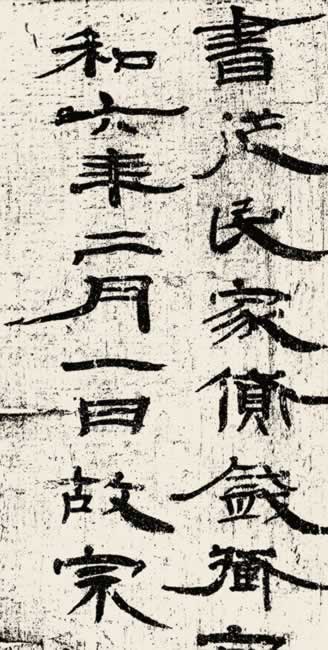 書從民家錢
和六年二月一日故宗